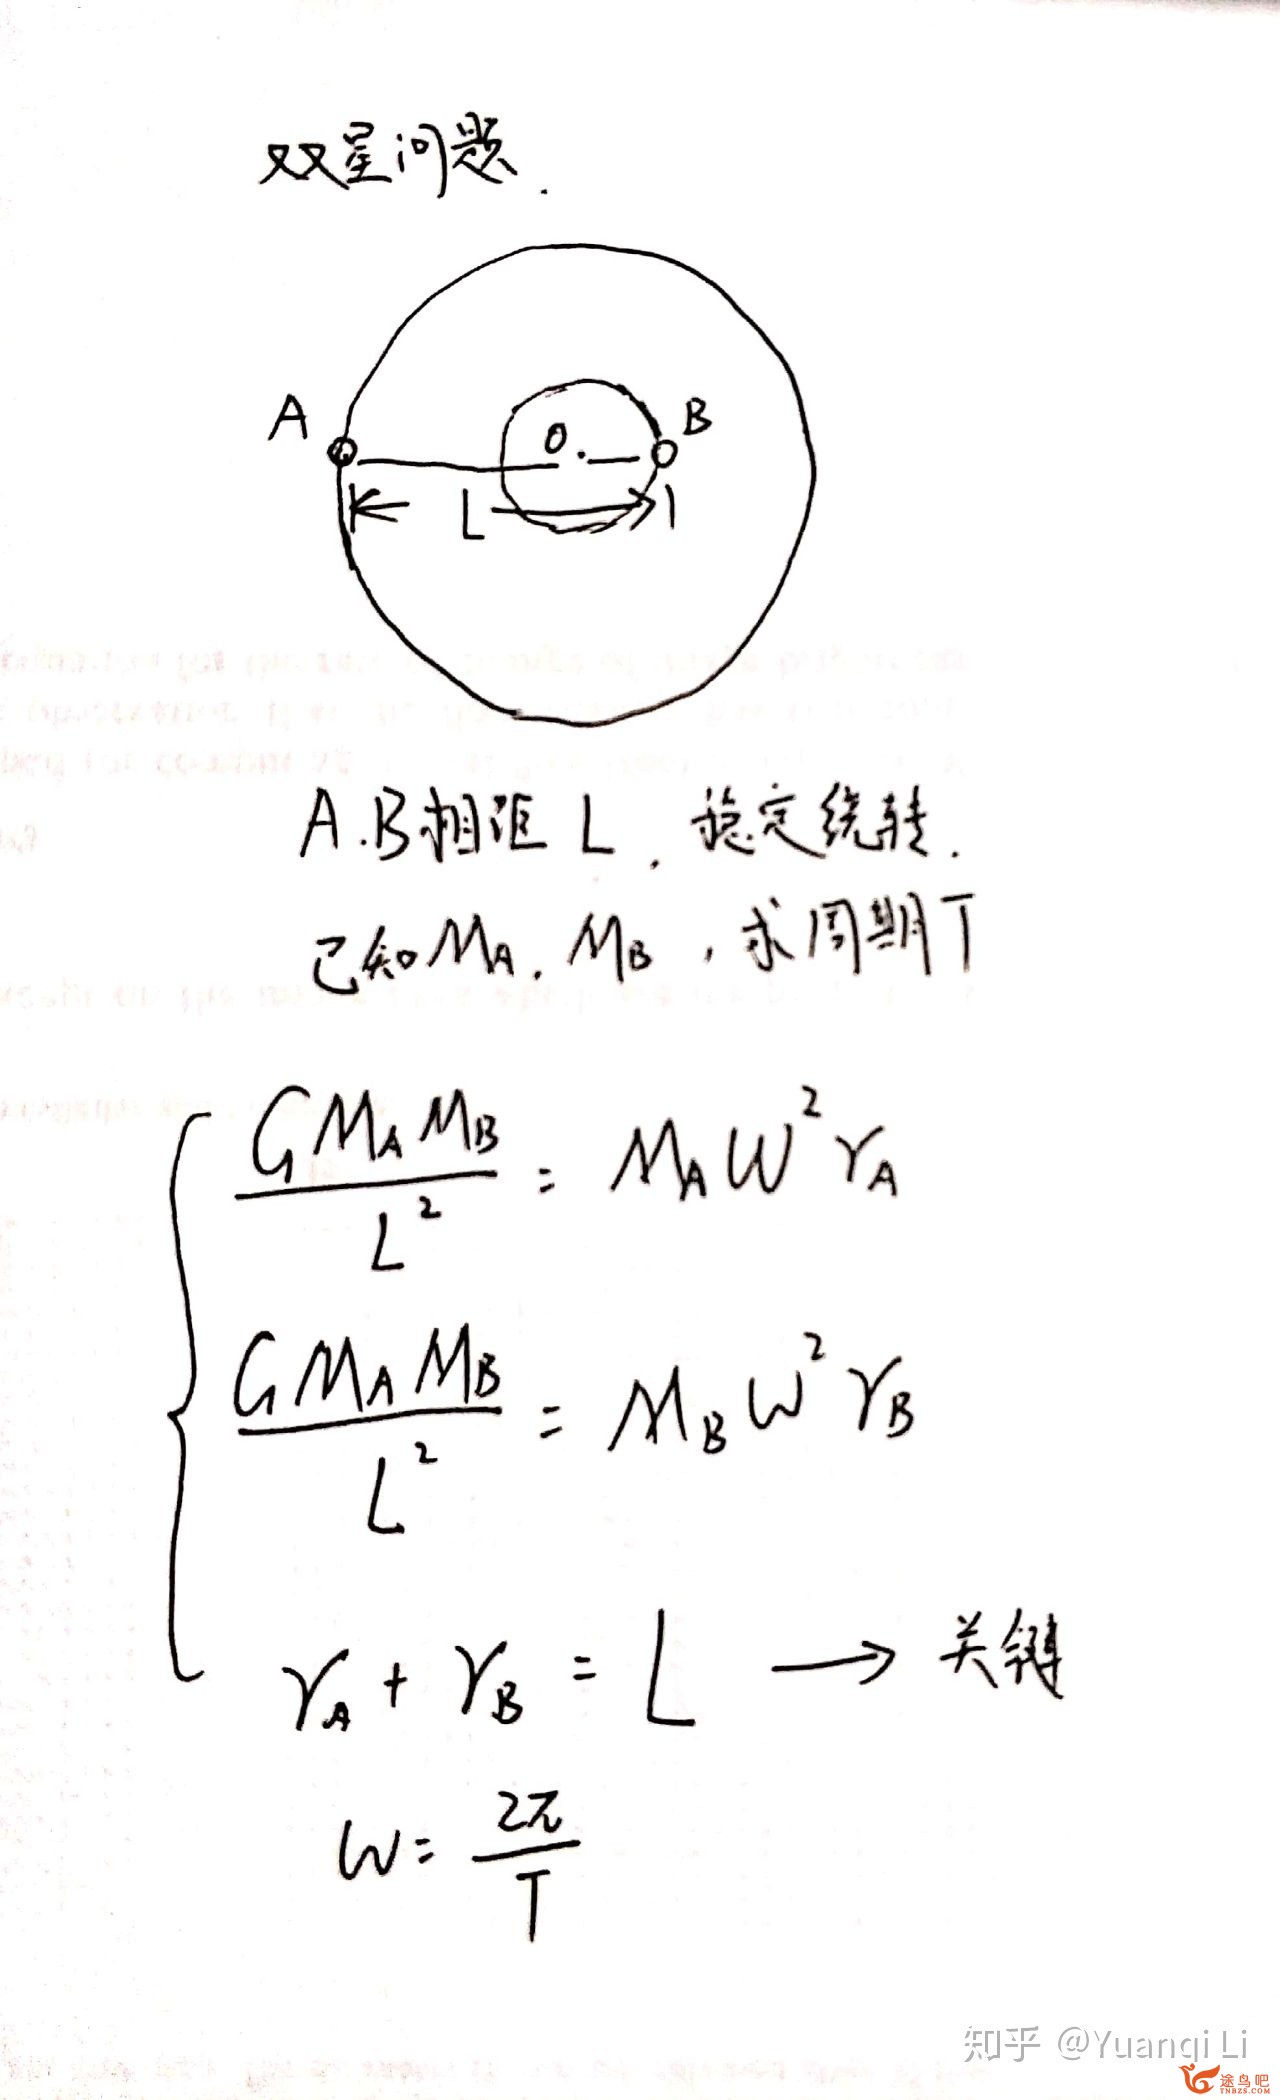 双星问题.
A B
O.
L
A.B相距L.稳定绕转.
已知MA.MB,求周期T
GMAMB/L² = MAW²rA
GMAMB/L² = MBW²rB
rA+rB=L → 关键
W=2π/T
知乎 @Yuanqi Li
途鸟吧
TNBZS.COM